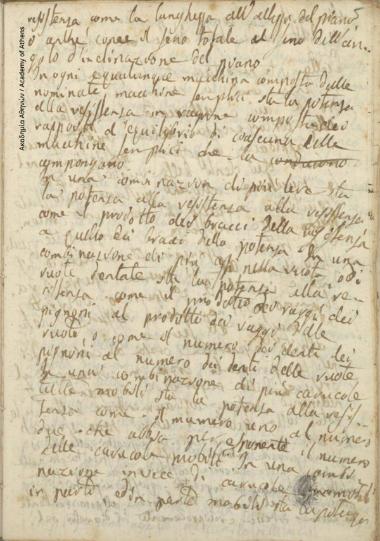 resistenza come la lunghezza all'altezza del piano
o anche come il seno totale al seno dell'an-
golo d'inclinazione del piano
In ogni e qualunque macchina composta dalle
nominate macchine semplici sta la potenza
alla resistenza in ragione composta dei
rapporti d'equilibrio di ciascuna delle
macchine semplici che la
compongono
In una combinazione di più leve sta
la potenza alla resistenza
come il prodotto dei bracci della resistenza
a quello dei bracci della potenza In una
combinazione di più nella ruota o di
ruote dentate sta la potenza alla re-
sistenza come il prodotto dei raggi dei
pignoni al prodotto dei raggi delle
ruote o come il numero dei denti dei
pignoni al numero dei denti delle ruote
In una combinazione di più carucole
tutte mobili sta la potenza alla resis-
tenza come il numero uno al numero
due che abbia per esponente il numero
delle carucole mobili In una combi-
nazione invece di carucole immobili
in parte ed in parte mobili sta la potenza
Ακαδημία Αθηνών / Academy of Athens